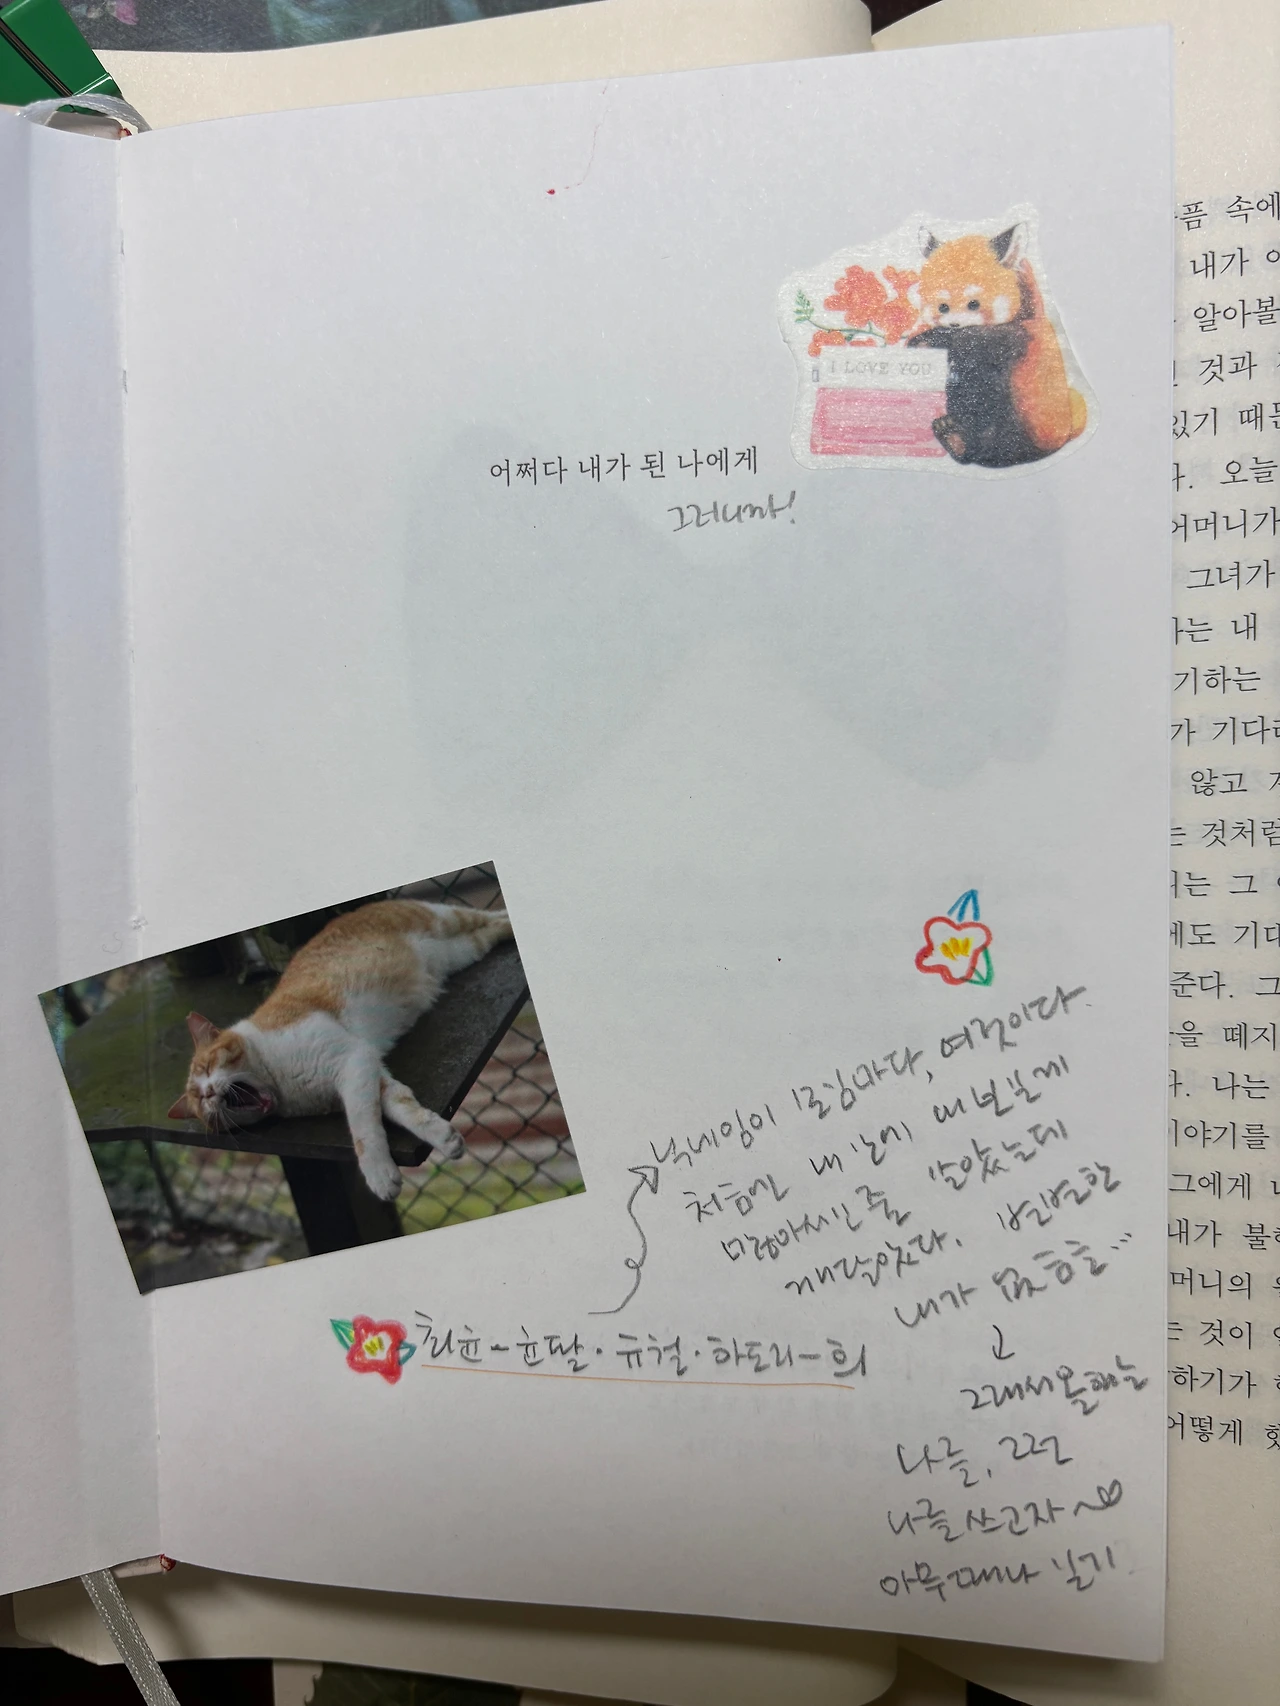 I LOVE YOU
어쩌다 내가 된 나에게
그러니까!
닉네임이 모임마다, 여럿이다.
처음엔 내 안에 내
줄 알았는데
깨달았다. 변변한
내가 없음을…
그래서 올해는
나를, 그런
나를 쓰고자~♡
아무때나 일기.
최윤-윤딸·뉴철·하토리-희
픔 속에
내가
알아볼
것과
있기 때문
다. 오늘
어머니가
그녀가
하는 내
기하는
가 기다리
않고
는 것처럼
는 그
에도 기대
준다. 그
을 떼지
다. 나는
이야기를
그에게
내가 불
머니의
는 것이
하기가
어떻게 했